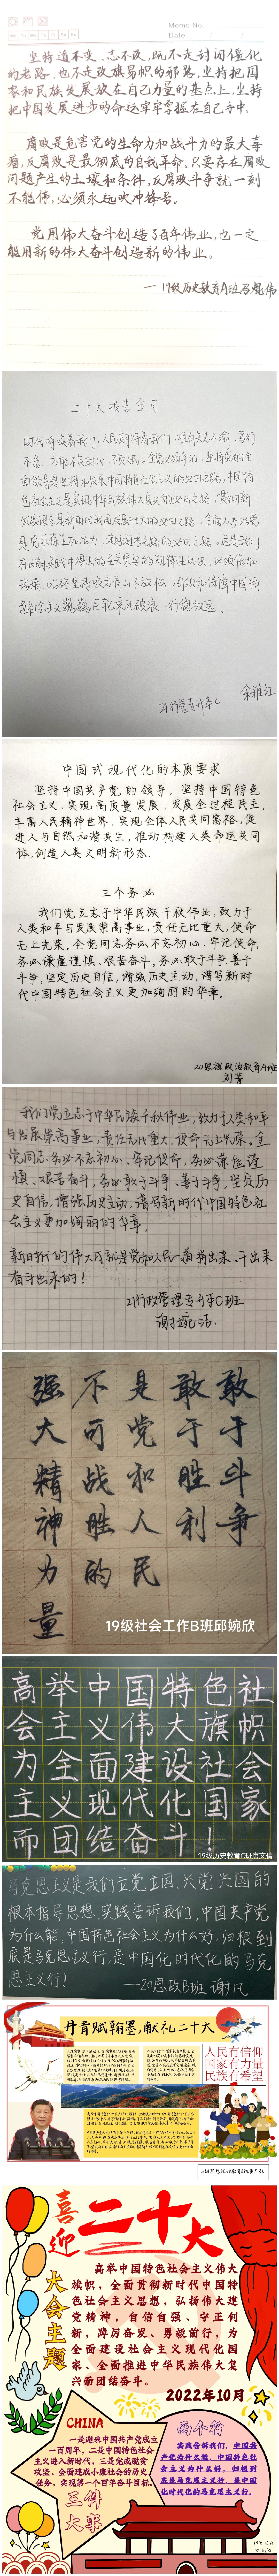 Memo No.
Date
Mo Tu We Th Fr Sa Su
坚持道不变、志不改,既不走封闭僵化
的老路,也不走改旗易帜的邪路,坚持把国
家和民族发展放在自己力量的基点上,坚持
把中国发展进步的命运牢牢掌握在自己手中。
腐败是危害党的生命力和战斗力的最大毒
瘤,反腐败是最彻底的自我革命。只要存在腐败
问题产生的土壤和条件,反腐败斗争就一刻
不能停,必须永远吹冲锋号。
党用伟大奋斗创造了百年伟业,也一定
能用新的伟大奋斗创造新的伟业。
二十大报告金句
时代呼唤着我们,人民期待着我们,唯有矢志不渝、笃行
不怠,方能不负时代、不负人民。全党必须牢记,坚持党的全
面领导是坚持和发展中国特色社会主义的必由之路,中国特
色社会主义是实现中华民族伟大复兴的必由之路,贯彻新
发展理念是新时代我国发展壮大的必由之路,全面从严治党
是党永葆生机活力、走好新的赶考之路的必由之路。这是我们
在长期实践中得出的至关紧要的规律性认识,必须倍加
珍惜、始终坚持,咬定青山不放松,引领和保障中国特
色社会主义巍巍巨轮乘风破浪、行稳致远。
中国式现代化的本质要求
坚持中国共产党的领导,坚持中国特色
社会主义,实现高质量发展,发展全过程民主,
丰富人民精神世界,实现全体人民共同富裕,促
进人与自然和谐共生,推动构建人类命运共同
体,创造人类文明新形态。
三个务必
我们党立志于中华民族千秋伟业,致力于
人类和平与发展崇高事业,责任无比重大,使命
无上光荣。全党同志务必不忘初心、牢记使命,
务必谦虚谨慎、艰苦奋斗,务必敢于斗争、善于
斗争,坚定历史自信,增强历史主动,谱写新时
代中国特色社会主义更加绚丽的华章。
20思想政治教育A班
刘菁
我们党立志于中华民族千秋伟业,致力于人类和平
与发展崇高事业,责任无比重大,使命无上光荣。全
党同志务必不忘初心、牢记使命,务必谦虚谨
慎、艰苦奋斗,务必敢于斗争、善于斗争,坚定历
史自信,增强历史主动,谱写新时代中国特色社
会主义更加绚丽的华章。
新时代的伟大成就是党和人民一道拼出来、干出来、
奋斗出来的!
21行政管理专升本C班
谢婉洁
敢于斗争
敢于胜利
是党和人民
不可战胜的
强大精神力量
19级社会工作B班邱婉欣
高举中国特色社
会主义伟大旗帜
为全面建设社会
主义现代化国家
而团结奋斗!
19级历史教育C班唐文倩
马克思主义是我们立党立国、兴党兴国的
根本指导思想。实践告诉我们,中国共产党
为什么能,中国特色社会主义为什么好,归根到
底是马克思主义行,是中国化时代化的马克
思主义行!
——20思政B班 谢凡
丹青赋翰墨,献礼二十大
人民有信仰
国家有力量
民族有希望
喜迎二十大
大会主题
高举中国特色社会主义伟大
旗帜,全面贯彻新时代中国特
色社会主义思想,弘扬伟大建
党精神,自信自强、守正创
新,踔厉奋发、勇毅前行,为
全面建设社会主义现代化国
家、全面推进中华民族伟大复
兴而团结奋斗。
2022年10月
CHINA
一是迎来中国共产党成立
一百周年,二是中国特色社会
主义进入新时代,三是完成脱贫
攻坚、全面建成小康社会的历史
任务,实现第一个百年奋斗目标。
三件
大事
两个行
实践告诉我们,中国共
产党为什么能,中国特色社
会主义为什么好,归根到
底是马克思主义行,是中国
化时代化的马克思主义行。